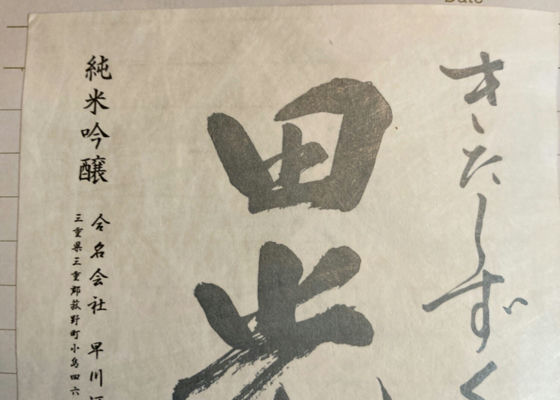 Date
きたしずく
田光
純米吟醸
合名会社 早川
三重県三重郡菰野町小島四六